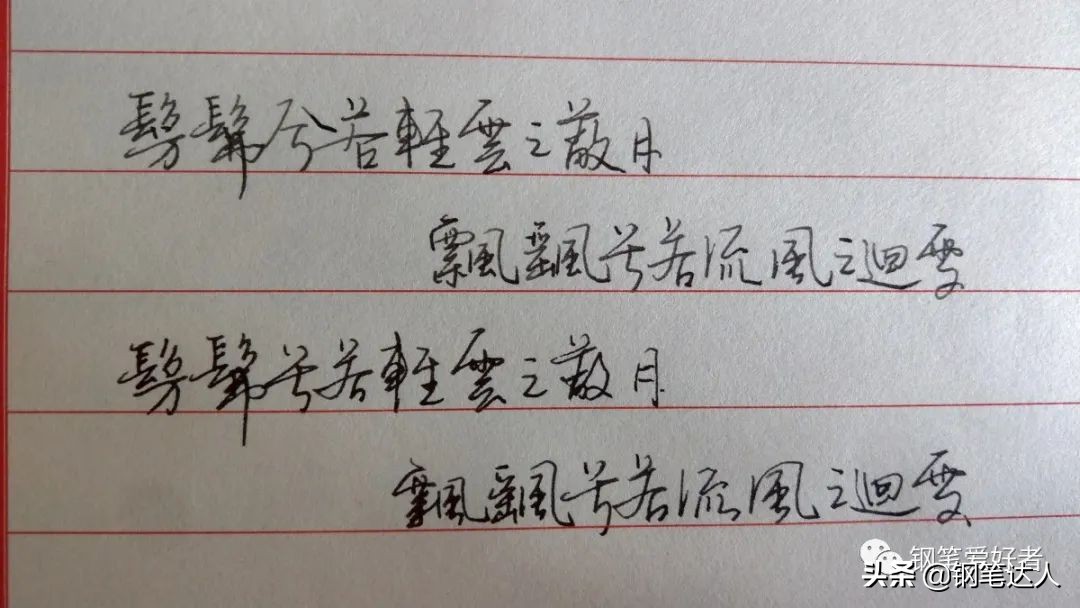 髣髴兮若輕雲之蔽月
飄飖兮若流風之迴雪
髣髴兮若輕雲之蔽月
飄飖兮若流風之迴雪
钢笔爱好者
头条 @钢笔达人